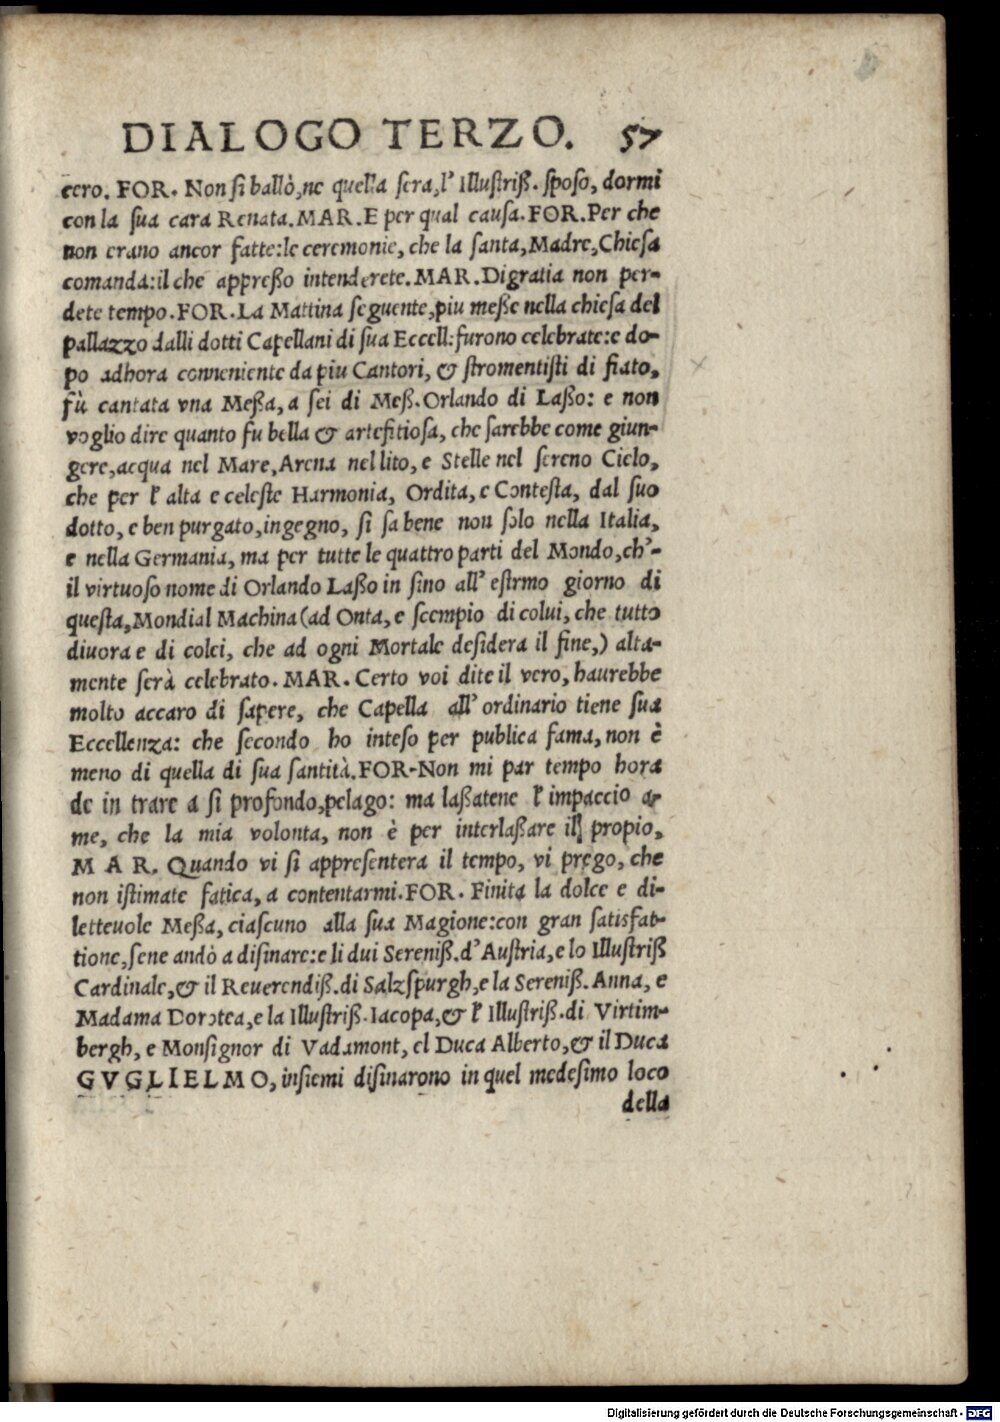 DIALOGO TERZO. 57
cero. FOR. Non si ballò, ne quella sera, l' Illustriß. sposo, dormi
con la sua cara Renata. MAR. E per qual causa. FOR. Per che
non erano ancor fatte: le ceremonie, che la santa, Madre, Chiesa
comanda: il che appreßo intenderete. MAR. Di gratia non per-
dete tempo. FOR. La Mattina seguente, piu meße nella chiesa del
pallazzo dalli dotti Capellani di sua Eccell: furono celebrate: e do-
po adhora conueniente da piu Cantori, & stromentisti di fiato,
fù cantata vna Meßa, a sei di Meß. Orlando di Laßo: e non
voglio dire quanto fu bella & artefitiosa, che sarebbe come giun-
gere, acqua nel Mare, Arena nel lito, e Stelle nel sereno Cielo,
che per l' alta e celeste Harmonia, Ordita, e Contesta, dal suo
dotto, e ben purgato, ingegno, si sa bene non solo nella Italia,
e nella Germania, ma per tutte le quattro parti del Mondo, ch'-
il virtuoso nome di Orlando Laßo in sino all' estrmo giorno di
questa, Mondial Machina (ad Onta, e scempio di colui, che tutto
diuora e di colei, che ad ogni Mortale desidera il fine,) alta-
mente serà celebrato. MAR. Certo voi dite il vero, haurebbe
molto accaro di sapere, che Capella all' ordinario tiene sua
Eccellenza: che secondo ho inteso per publica fama, non è
meno di quella di sua santità. FOR- Non mi par tempo hora
de in trare a si profondo, pelago: ma laßatene l' impaccio a-
me, che la mia volonta, non è per interlaßare il propio,
MAR. Quando vi si appresentera il tempo, vi prego, che
non istimate fatica, a contentarmi. FOR. Finita la dolce e di-
letteuole Meßa, ciascuno alla sua Magione: con gran satisfat-
tione, sene andò a disinare: e li dui Sereniß. d' Austria, e lo Illustriß
Cardinale, & il Reuerendiß. di Salzspurgh, e la Sereniß. Anna, e
Madama Dorotea, e la Illustriß. Iacopa, & l' Illustriß. di Virtim-
bergh, e Monsignor di Vadamont, el Duca Alberto, & il Duca
GVGLIELMO, insiemi disinarono in quel medesimo loco
della
Digitalisierung gefördert durch die Deutsche Forschungsgemeinschaft - DFG